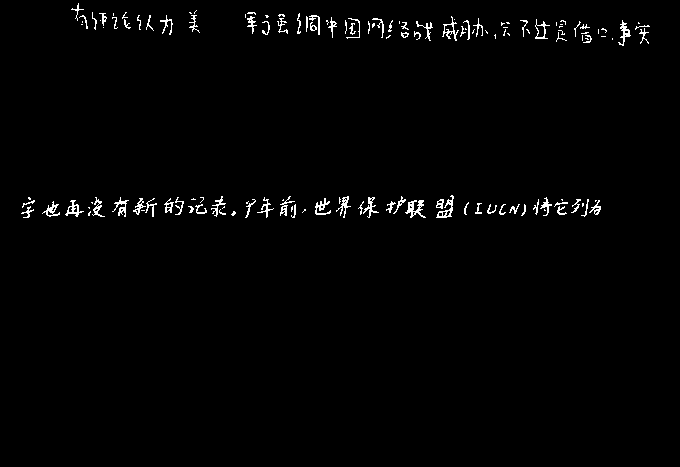 有评论认为美 军方强调中国网络战威胁,只不过是借口.事实
字也再没有新的记录。9年前,世界保护联盟(IUCN)将它列为